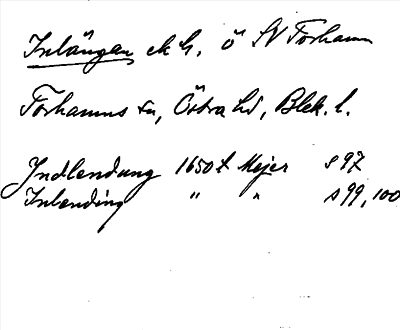 Inlängan ek h. ö SV Torhamn
Torhamns sn, Östra hd, Blek. l.
Jndlendung 1650 t Mejer s 97
Inlending " " s 99, 100